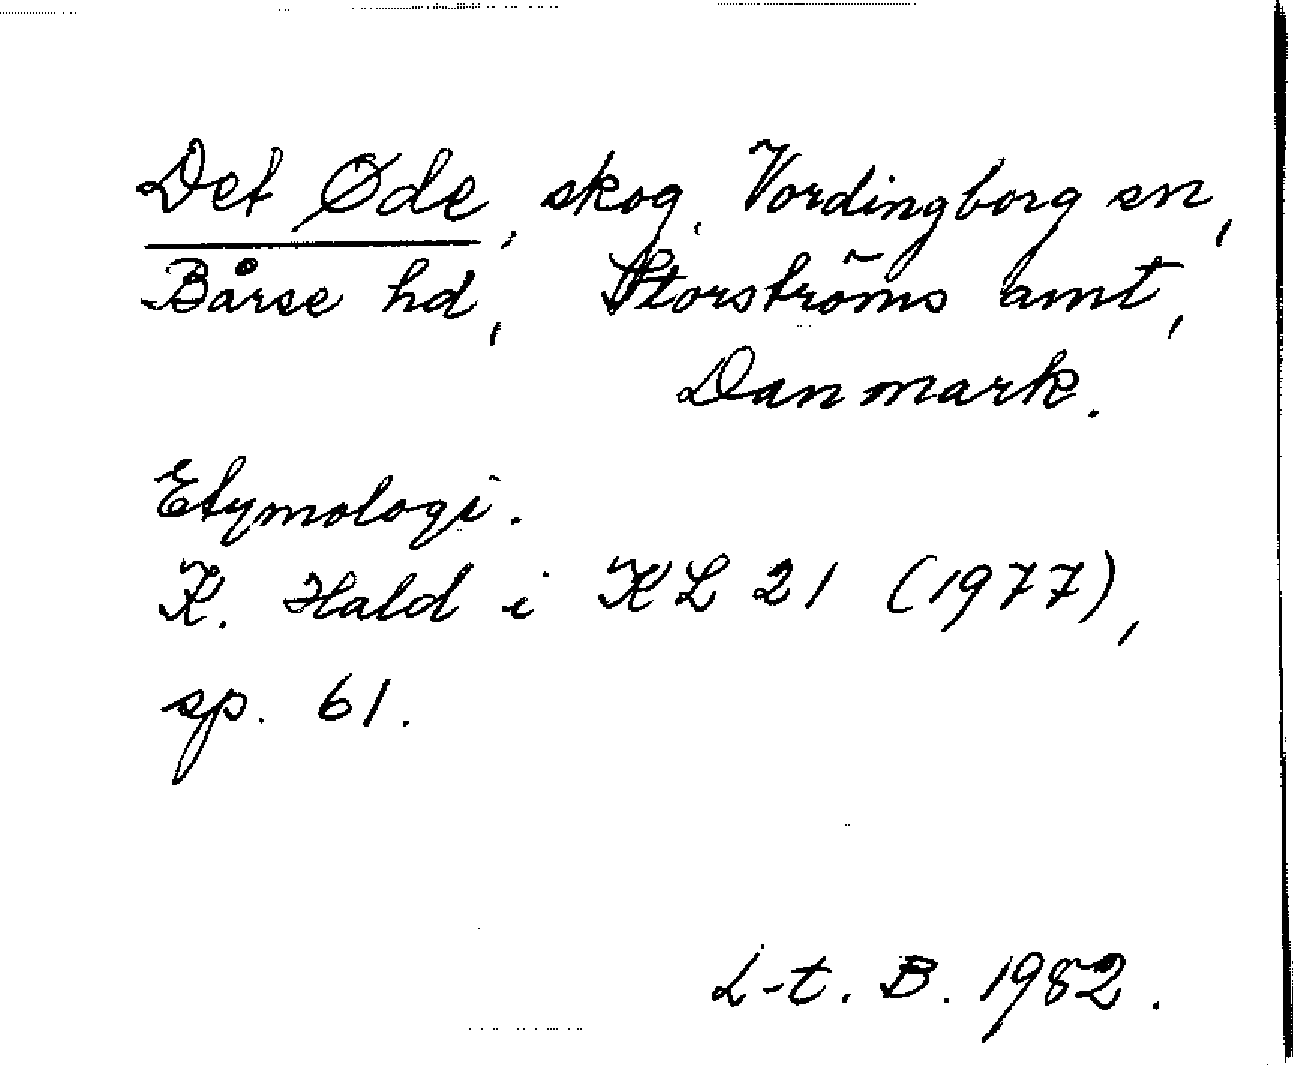 Det Øde, skog, Vordingborg sn,
Bårse hd, Storströms amt,
Danmark.
Etymologi.
K. Hald i KL 21 (1977),
sp. 61.
L-t. B. 1982.